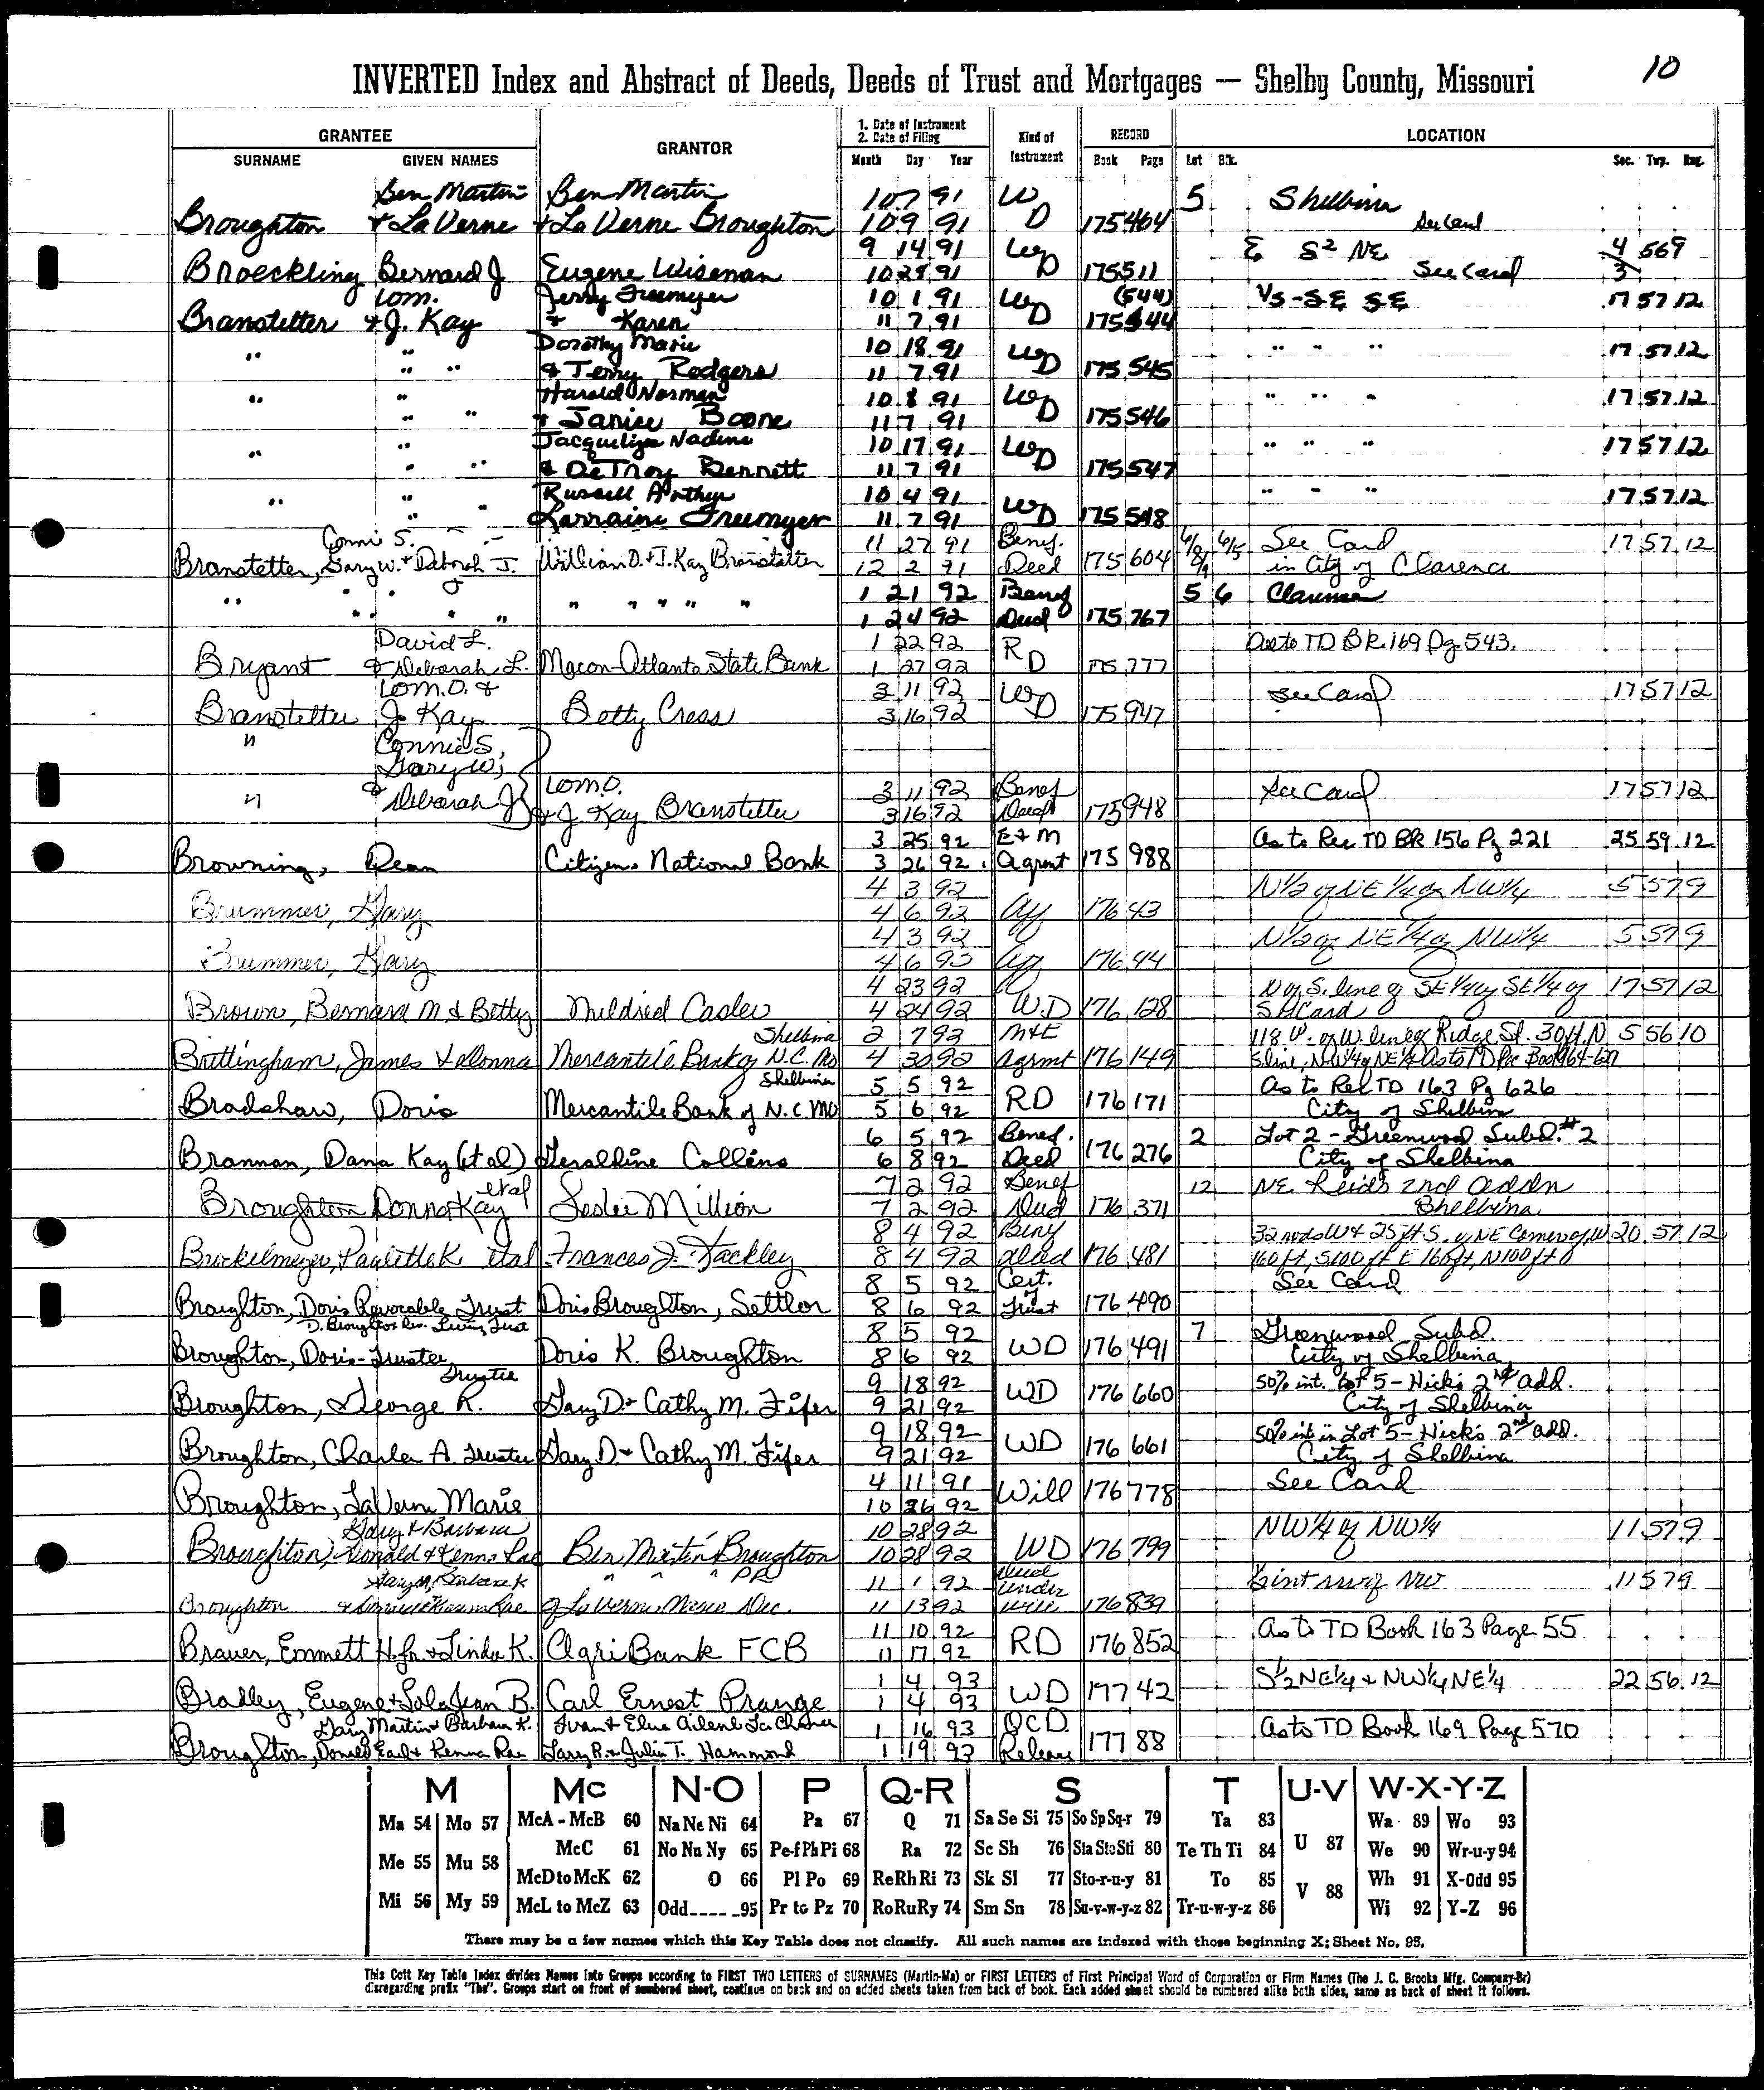 10
INVERTED Index and Abstract of Deeds, Deeds of Trust and Mortgages — Shelby County, Missouri
GRANTEE GRANTOR 1. Date of Instrument 2. Date of Filing Kind of Instrument RECORD LOCATION
SURNAME GIVEN NAMES Month Day Year Book Page Lot Blk. Sec. Twp. Rng.
Ben Martin Ben Martin 10 7 91 W 5 Shelbina
Broughton & LaVerne & LaVerne Broughton 10 9 91 D 175 464 See Card
9 14 91 W E S2 NE 4 56 9
Broeckling Bernard J Eugene Wiseman 10 28 91 D 175 511 See Card 3
Wm. Jerry Freemyer 10 1 91 W (544) VS-SE SE 17 57 12
Branstetter & J. Kay & Karen 11 7 91 D 175 544
" " Dorothy Marie 10 18 91 W " " " 17 57 12
" " & Terry Rodgers 11 7 91 D 175 545
" " Harold Norman 10 8 91 W " " " 17 57 12
" " & Janice Boone 11 7 91 D 175 546
" " Jacqueline Nadine 10 17 91 W " " " 17 57 12
" " & DeTroy Bennett 11 7 91 D 175 547
" " Russell Arthur 10 4 91 W " " " 17 57 12
" " Larraine Freemyer 11 7 91 D 175 548
Connie S. 11 27 91 Benef. See Card 17 57 12
Branstetter, Gary W. & Deborah J. William D. & J. Kay Branstetter 12 2 91 Deed 175 604 in City of Clarence
" " " " " " " " " 1 21 92 Benef 5 6 Clarence
" " " " 1 24 92 Deed 175 767
David L. 1 22 92 R As to TD BK 169 Pg 543.
Bryant & Deborah L. Macon-Atlanta State Bank 1 27 92 D 175 777
Wm. D. & 3 11 92 W See Card 17 57 12
Branstetter J. Kay Betty Cress 3 16 92 D 175 947
" Connie S,
Gary W,
Wm. D. 3 11 92 Benef See Card 17 57 12
" & Deborah J & J. Kay Branstetter 3 16 92 Deed 175 948
3 25 92 E & M As to Rec TD BK 156 Pg 221 25 59 12
Browning, Dean Citizens National Bank 3 26 92 Agrmt 175 988
4 3 92 N1/2 of NE 1/4 of NW1/4 5 57 9
Brummer, Gary 4 6 92 Aff 176 43
4 3 92 N1/2 of NE1/4 of NW1/4 5 57 9
Brummer, Gary 4 6 92 176 44
4 23 92 N of S. line of SE 1/4 of SE 1/4 of 17 57 12
Brown, Bernard M & Betty Mildred Casler 4 24 92 W.D 176 128
Shelbina 2 7 92 M&E 118 W. of W. line of Ridge St. 30 ft. N 5 56 10
Brittingham, James & Donna Mercantile Bank of N.C. Mo 4 30 92 Agrmt 176 149
Shelbina 5 5 92 As to Rel TD 163 Pg 626
Bradshaw, Doris Mercantile Bank of N.C. MO 5 6 92 RD 176 171 City of Shelbina
6 5 92 Benef. 2 Lot 2 - Greenwood Subd. #2
Brannan, Dana Kay (et al) Geraldine Collins 6 8 92 Deed 176 276 City of Shelbina
et al 7 2 92 Benef 12 NE Reid's 2nd Addn
Broughton Donna Kay Leslie Million 7 2 92 Deed 176 371 Shelbina
8 4 92 Benf 32 rods W & 25 ft S. of NE Corner of W 20 57 12
Paulette K etal Frances J. Hackley 8 4 92 deed 176 481 160 ft, S 100 ft E 160 ft, N 100 ft
8 5 92 Cert. of See Card
Broughton, Doris Revocable Trust Doris Broughton, Settlor 8 6 92 Trust 176 490
D. Broughton Rev. Living Trust 8 5 92 7 Greenwood Subd.
Broughton, Doris-Trustee Doris K. Broughton 8 6 92 WD 176 491 City of Shelbina
Trustee 9 18 92 50% int. Lot 5 - Hick's 2nd add.
Broughton, George R. Gary D. & Cathy M. Fifer 9 21 92 WD 176 660 City of Shelbina
9 18 92 50% int in Lot 5 - Hick's 2nd add.
Broughton, Charles A. Trustee Gary D & Cathy M. Fifer 9 21 92 WD 176 661 City of Shelbina
4 11 91 See Card
Broughton, LaVerne Marie 10 26 92 Will 176 778
Gary & Barbara 10 28 92 NW 1/4 of NW 1/4 11 57 9
Broughton, Donald & Kenna Rae Ben Martin Broughton 10 28 92 WD 176 799
Gary M. Barbara K " " " PR 11 1 92 Deed under NW of NW 11 57 9
Broughton of LaVerne Marie Dec. 11 13 92 will 176 839
11 10 92 As to TD Book 163 Page 55
Brauer, Emmett H. Jr. & Linda K. AgriBank FCB 11 17 92 RD 176 852
1 4 93 S1/2 NE1/4 & NW1/4 NE1/4 22 56 12
Bradley, Eugene & Lola Jean B. Carl Ernest Prange 1 4 93 WD 177 42
Gary Martin & Barbara K. 1 16 93 QCD As to TD Book 169 Page 570
Broughton, Donald Earl & Kenna Rae Gary R. & Julia T. Hammond 1 19 93 Release 177 88
M Mc N-O P Q-R S T U-V W-X-Y-Z
Ma 54 Mo 57 McA - McB 60 Na Ne Ni 64 Pa 67 Q 71 Sa Se Si 75 So Sp Sq-r 79 Ta 83 Wa 89 Wo 93
McC 61 No Nu Ny 65 Pe-f Ph Pi 68 Ra 72 Sc Sh 76 Sta Ste Sti 80 Te Th Ti 84 U 87 We 90 Wr-u-y 94
Me 55 Mu 58 McD to McK 62 O 66 Pl Po 69 Re Rh Ri 73 Sk Sl 77 Sto-r-u-y 81 To 85 V 88 Wh 91 X-Odd 95
Mi 56 My 59 McL to McZ 63 Odd 95 Pr to Pz 70 Ro Ru Ry 74 Sm Sn 78 Su-v-w-y-z 82 Tr-u-w-y-z 86 Wi 92 Y-Z 96
There may be a few names which this Key Table does not classify. All such names are indexed with those beginning X; Sheet No. 95.
This Cott Key Table Index divides Names into Groups according to FIRST TWO LETTERS of SURNAMES (Martin-Ma) or FIRST LETTERS of First Principal Word of Corporation or Firm Names (The J. C. Brooks Mfg. Company-Br)
disregarding prefix "The". Groups start on front of numbered sheet, continue on back and on added sheets taken from back of book. Each added sheet should be numbered alike both sides, same as back of sheet it follows.